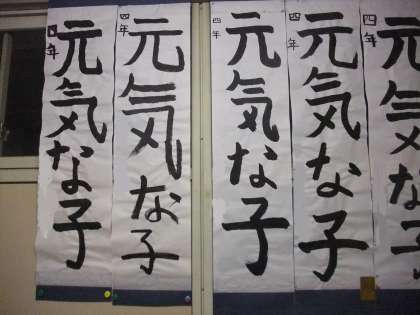 四年
元気な子
四年
元気な子
四年
元気な子
四年
元気な子
四年
元気な子